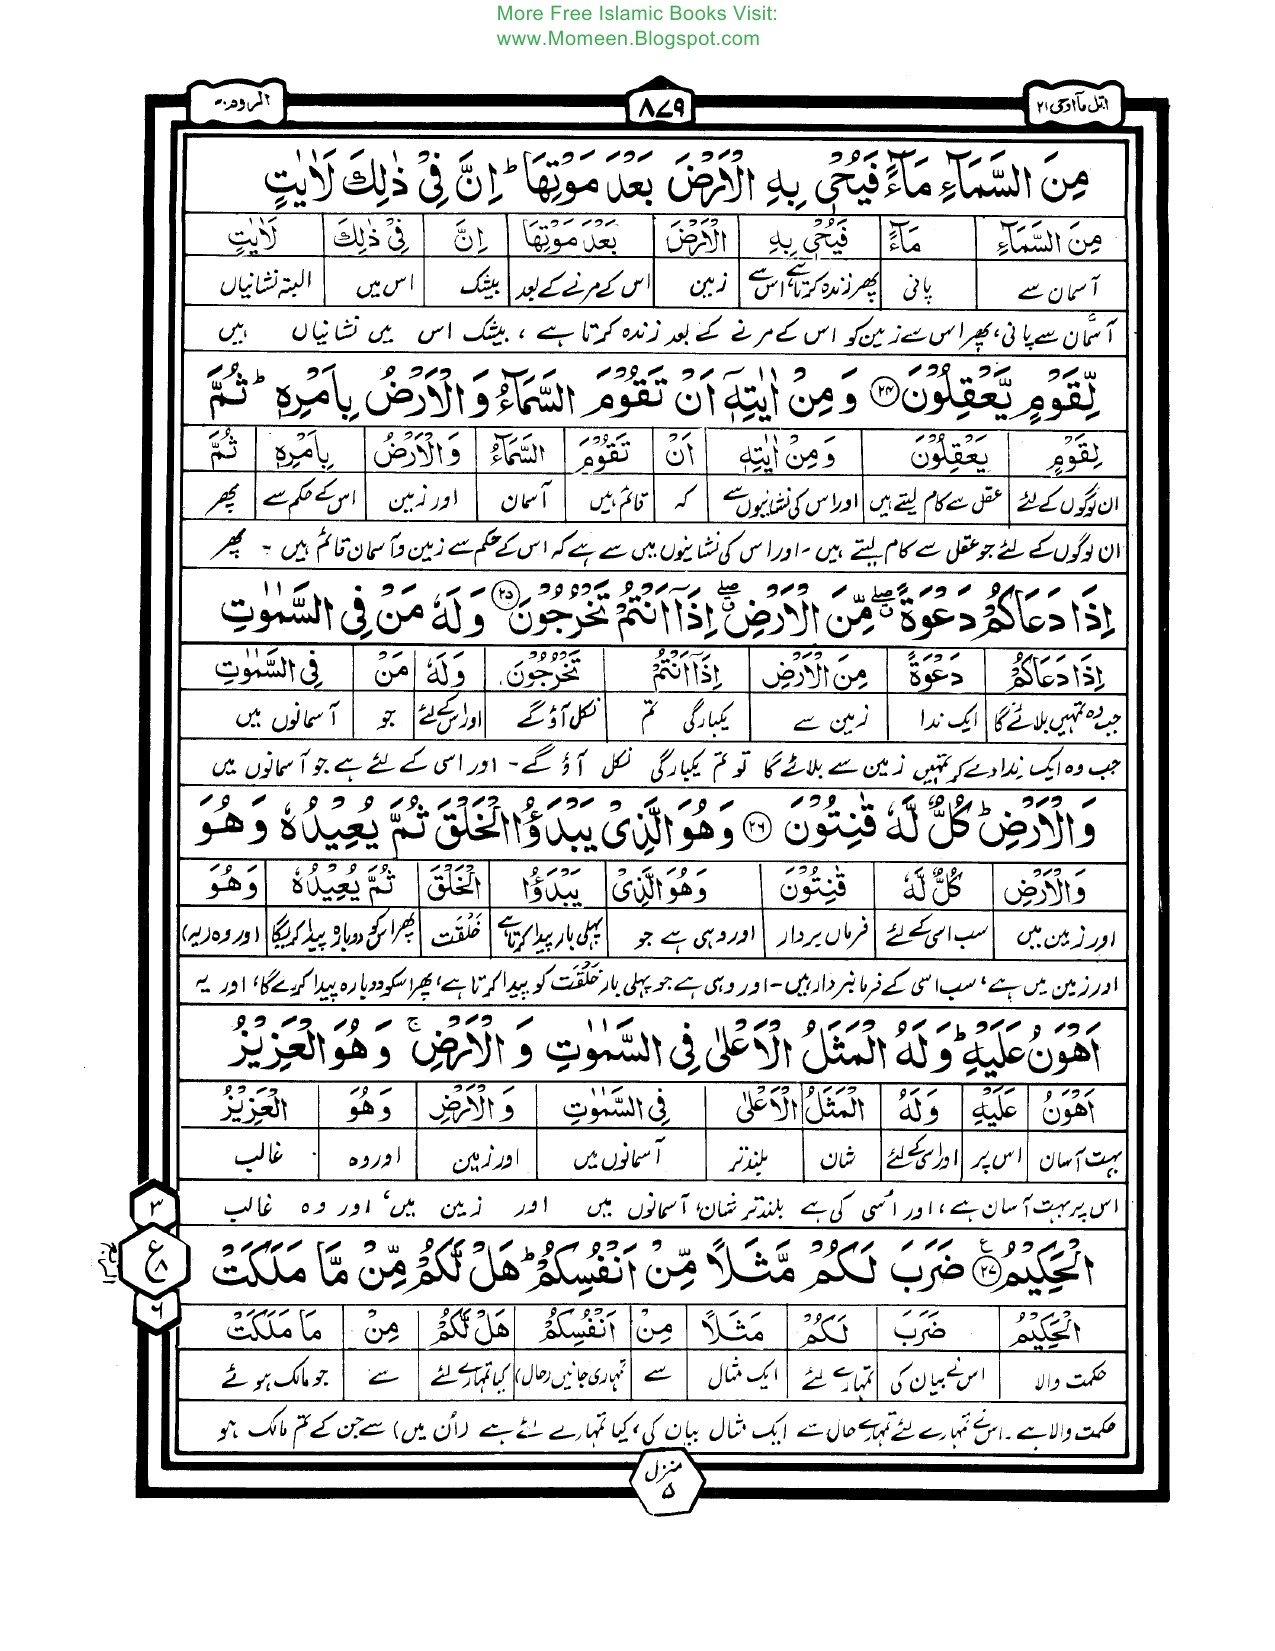 More Free Islamic Books Visit:
www.Momeen.Blogspot.com
اتل مآ اوحی ۲۱
۸۷۹
الروم ۳۰
مِنَ السَّمَآءِ مَآءً فَيُحْيٖ بِهِ الْاَرْضَ بَعْدَ مَوْتِهَا ؕ اِنَّ فِيْ ذٰلِكَ لَاٰيٰتٍ
مِنَ السَّمَآءِ مَآءً فَيُحْيٖ بِهِ الْاَرْضَ بَعْدَ مَوْتِهَا اِنَّ فِيْ ذٰلِكَ لَاٰيٰتٍ
آسمان سے پانی پھر زندہ کرتا ہے اس سے زمین اس کے مرنے کے بعد بیشک اس میں البتہ نشانیاں
آسمان سے پانی، پھر اس سے زمین کو اس کے مرنے کے بعد زندہ کرتا ہے ، بیشک اس میں نشانیاں ہیں
لِّقَوْمٍ يَّعْقِلُوْنَ ۲۴ وَ مِنْ اٰيٰتِهٖٓ اَنْ تَقُوْمَ السَّمَآءُ وَ الْاَرْضُ بِاَمْرِهٖ ؕ ثُمَّ
لِقَوْمٍ يَعْقِلُوْنَ وَ مِنْ اٰيٰتِهٖ اَنْ تَقُوْمَ السَّمَآءُ وَالْاَرْضُ بِاَمْرِهٖ ثُمَّ
ان لوگوں کے لئے عقل سے کام لیتے ہیں اور اس کی نشانیوں سے کہ قائم ہیں آسمان اور زمین اس کے حکم سے پھر
ان لوگوں کے لئے جو عقل سے کام لیتے ہیں - اور اس کی نشانیوں میں سے ہے کہ اس کے حکم سے زمین و آسمان قائم ہیں - پھر
اِذَا دَعَاكُمْ دَعْوَةً ۖۗ مِّنَ الْاَرْضِ ۖۗ اِذَآ اَنْتُمْ تَخْرُجُوْنَ ۲۵ وَ لَهٗ مَنْ فِي السَّمٰوٰتِ
اِذَا دَعَاكُمْ دَعْوَةً مِنَ الْاَرْضِ اِذَآ اَنْتُمْ تَخْرُجُوْنَ وَلَهٗ مَنْ فِي السَّمٰوٰتِ
جب وہ تمہیں بلائے گا ایک ندا زمین سے یکبارگی تم نکل آؤ گے اور اس کے لئے جو آسمانوں میں
جب وہ ایک ندا دے کر تمہیں زمین سے بلائے گا تو تم یکبارگی نکل آؤ گے - اور اسی کے لئے ہے جو آسمانوں میں
وَ الْاَرْضِ ؕ كُلٌّ لَّهٗ قٰنِتُوْنَ ۲۶ وَ هُوَ الَّذِيْ يَبْدَؤُا الْخَلْقَ ثُمَّ يُعِيْدُهٗ وَ هُوَ
وَالْاَرْضِ كُلٌّ لَّهٗ قٰنِتُوْنَ وَهُوَ الَّذِيْ يَبْدَؤُا الْخَلْقَ ثُمَّ يُعِيْدُهٗ وَهُوَ
اور زمین میں سب اسی کے لئے فرماں بردار اور وہی ہے جو پہلی بار پیدا کرتا ہے خلقت پھر اس کو دوبارہ پیدا کریگا اور وہ (یہ)
اور زمین میں ہے، سب اسی کے فرمانبردار ہیں - اور وہی ہے جو پہلی بار خلقت کو پیدا کرتا ہے، پھر اسکو دوبارہ پیدا کرے گا، اور یہ
اَهْوَنُ عَلَيْهِ ؕ وَ لَهُ الْمَثَلُ الْاَعْلٰى فِي السَّمٰوٰتِ وَ الْاَرْضِ ۚ وَ هُوَ الْعَزِيْزُ
اَهْوَنُ عَلَيْهِ وَلَهُ الْمَثَلُ الْاَعْلٰى فِي السَّمٰوٰتِ وَالْاَرْضِ وَهُوَ الْعَزِيْزُ
بہت آسان اس پر اور اسی کے لئے شان بلندتر آسمانوں میں اور زمین اور وہ غالب
اس پر بہت آسان ہے، اور اُسی کی ہے بلندتر شان، آسمانوں میں اور زمین میں، اور وہ غالب
الْحَكِيْمُ ۲۷ ضَرَبَ لَكُمْ مَّثَلًا مِّنْ اَنْفُسِكُمْ ؕ هَلْ لَّكُمْ مِّنْ مَّا مَلَكَتْ
الْحَكِيْمُ ضَرَبَ لَكُمْ مَثَلًا مِنْ اَنْفُسِكُمْ هَلْ لَّكُمْ مِنْ مَا مَلَكَتْ
حکمت والا اس نے بیان کی تمہارے لئے ایک مثال سے تمہاری جانیں (حال) کیا تمہارے لئے سے جو مالک ہوئے
حکمت والا ہے ۔ اس نے تمہارے لئے تمہارے حال سے ایک مثال بیان کی، کیا تمہارے لئے ہے (اُن میں) سے جن کے تم مالک ہو
۳
ع
۸
۶
الربع
منزل
۵